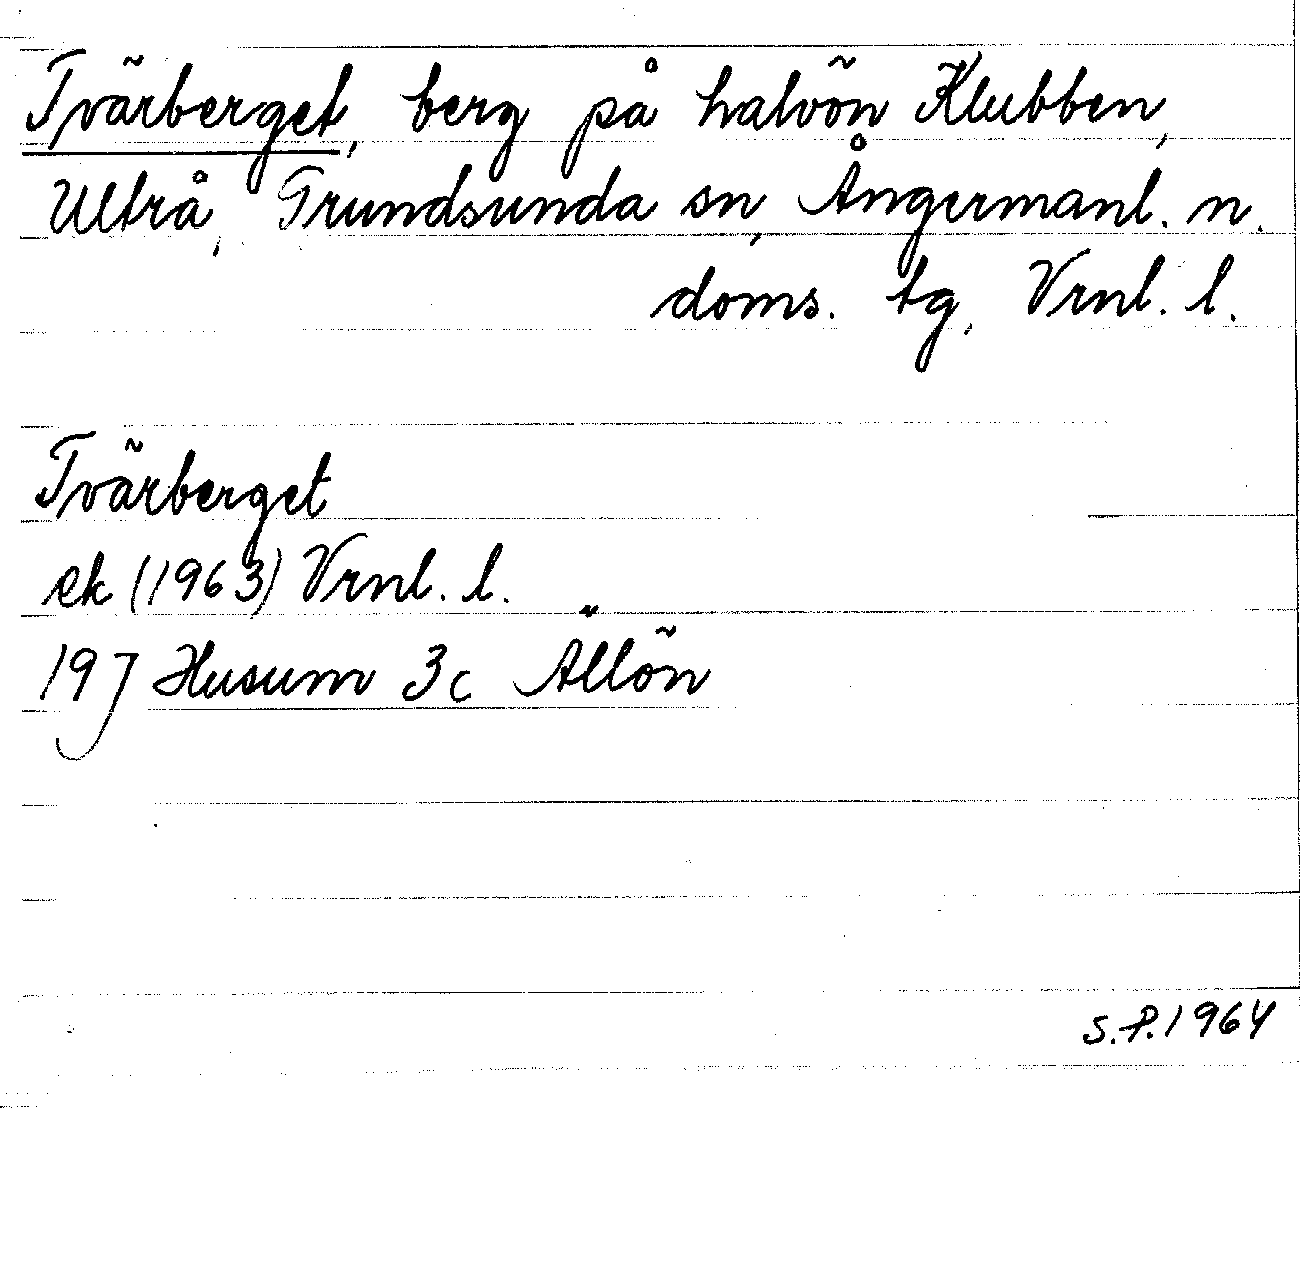 Tvärberget, berg på halvön Klubben,
Ultrå, Grundsunda sn, Ångermanl. n.
doms. tg, Vrnl. l.
Tvärberget
ek (1963) Vrnl. l.
19J Husum 3c Ällön
S.P. 1964